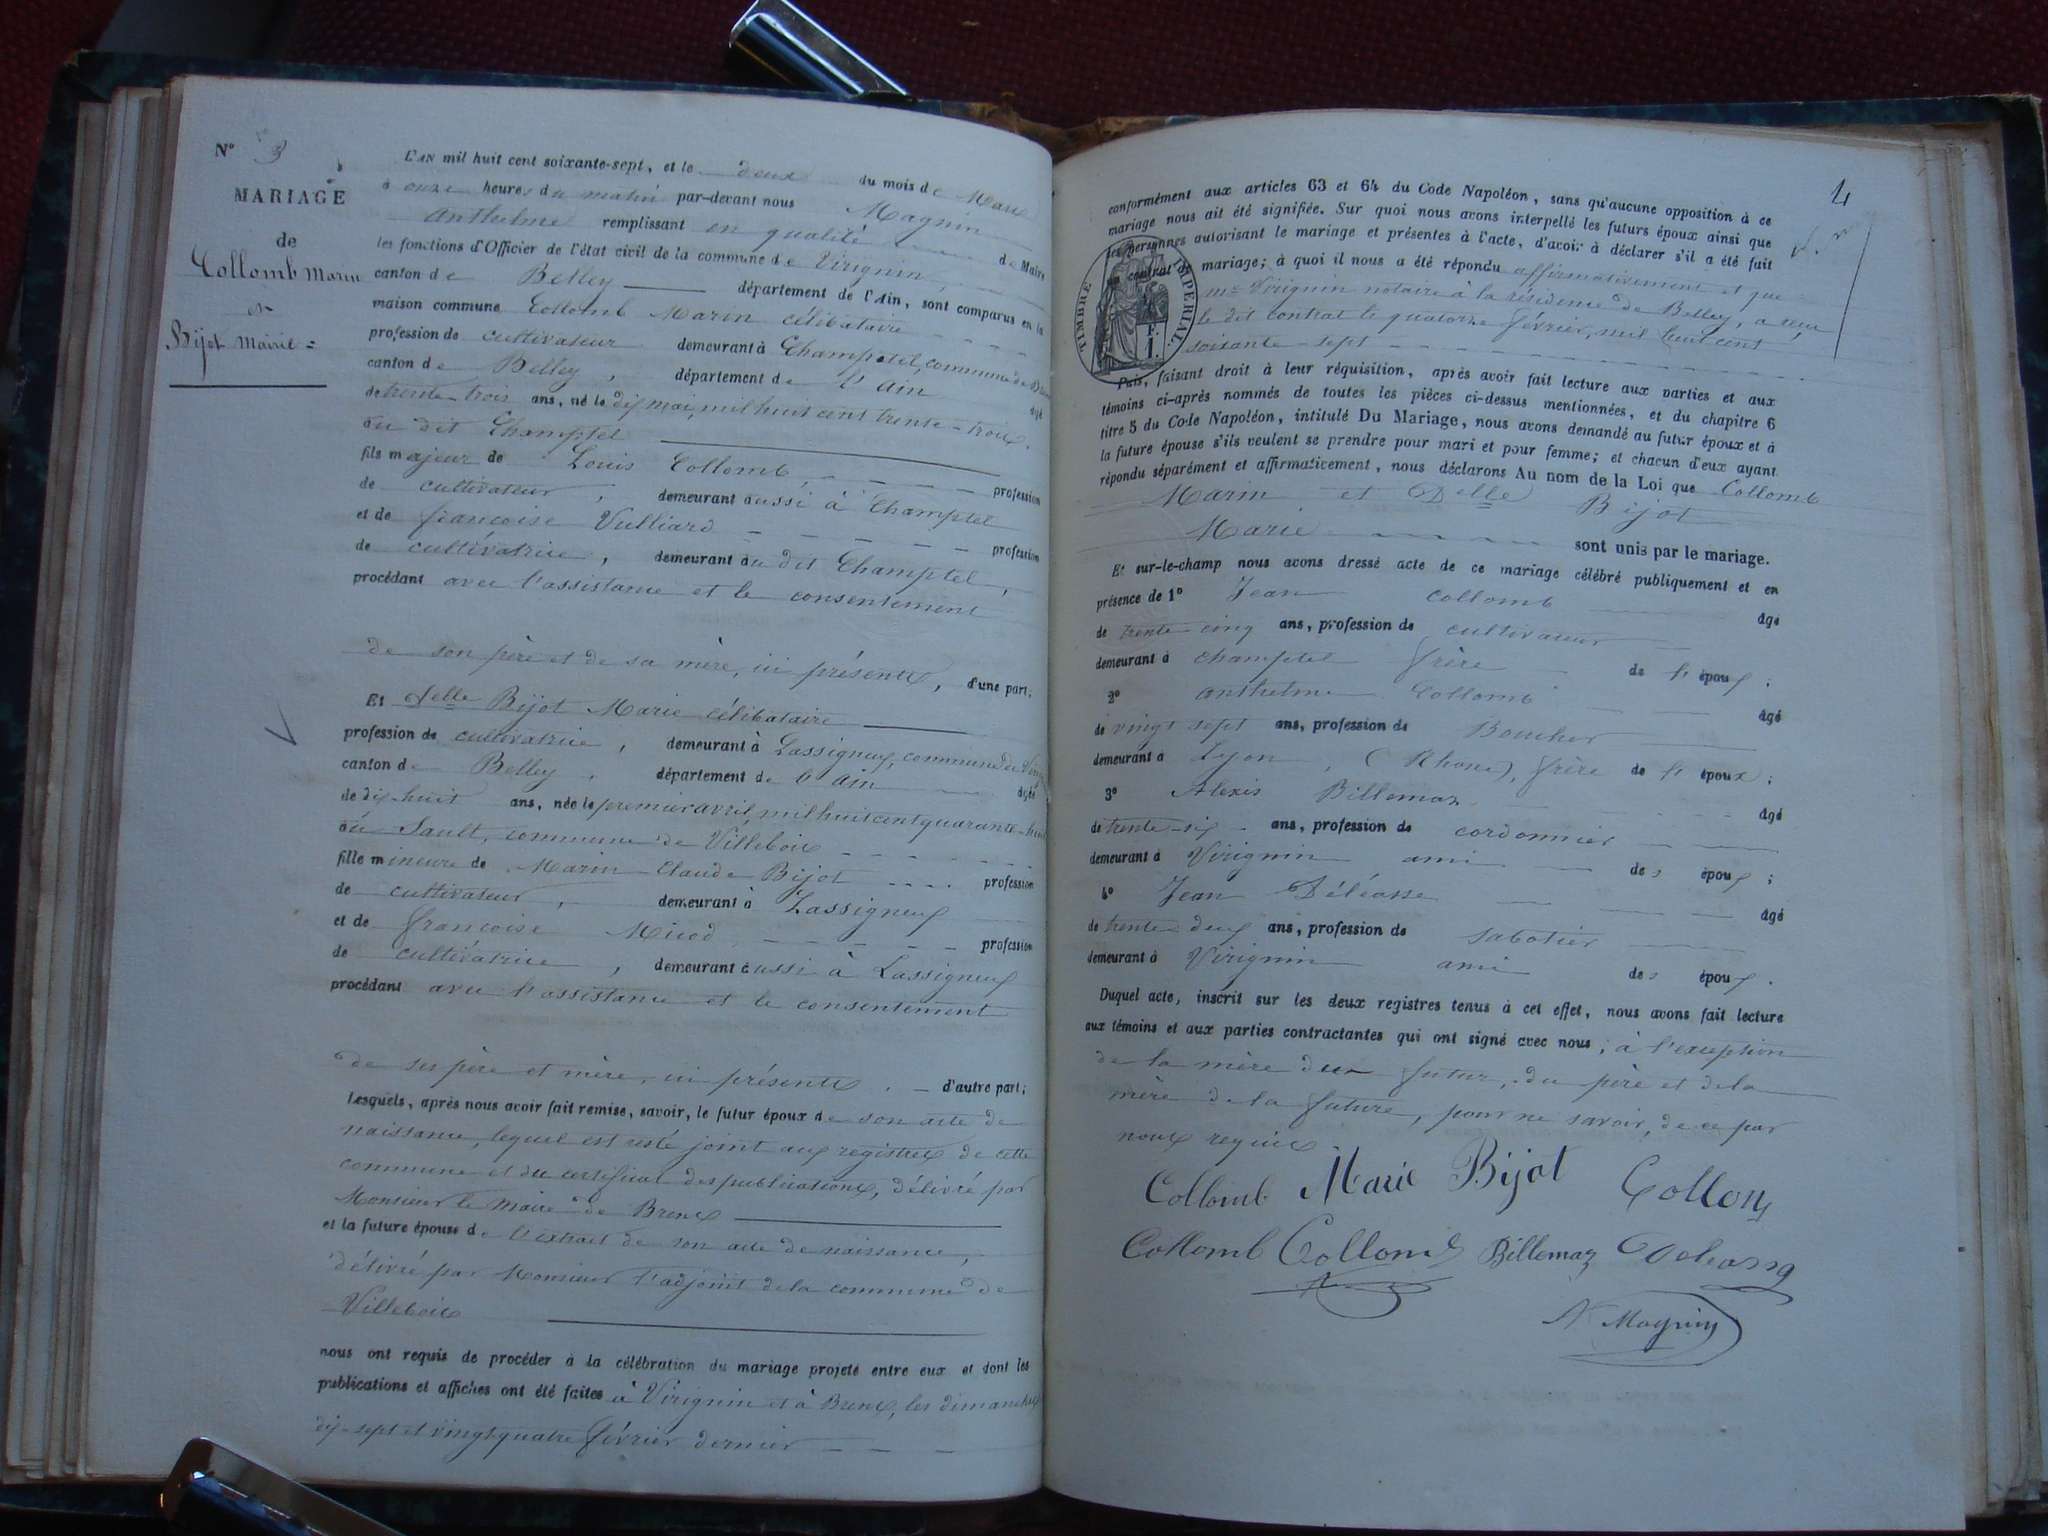 N° 3
MARIAGE
de
Collomb Marin
et
Bijot Marie =
L'AN mil huit cent soixante-sept, et le deux du mois de Mars
à onze heures du matin par-devant nous Magnin
Anthelme remplissant en qualité de Maire
les fonctions d'Officier de l'état civil de la commune de Virignin,
canton de Belley département de l'Ain, sont comparus en la
maison commune Collomb Marin célibataire
profession de cultivateur demeurant à Champtel, commune de
canton de Belley, département de l'ain âgé
de trente-trois ans, né le dix mai, mil huit cent trente-trois,
au dit Champtel
fils majeur de Louis Collomb, profession
de cultivateur, demeurant aussi à Champtel
et de françoise Vulliard profession
de cultivatrice, demeurant au dit Champtel,
procédant avec l'assistance et le consentement
de son père et de sa mère, ici présents, d'une part;
Et Delle Bijot Marie célibataire
profession de cultivatrice, demeurant à Lassigneux, commune de
canton de Belley, département de l'ain âgée
de dix-huit ans, née le premier avril, mil huit cent quarante-huit
au Sault, commune de Villebois
fille mineure de Marin Claude Bijot profession
de cultivateur, demeurant à Lassigneux
et de françoise Micod, profession
de cultivatrice, demeurant aussi à Lassigneux
procédant avec l'assistance et le consentement
de ses père et mère, ici présents. d'autre part;
Lesquels, après nous avoir fait remise, savoir, le futur époux de son acte de
naissance, lequel est resté joint aux registres de cette
commune et du certificat des publications, délivré par
Monsieur le Maire de Brens
et la future épouse de l'extrait de son acte de naissance,
délivré par Monsieur l'adjoint de la commune de
Villebois
nous ont requis de procéder à la célébration du mariage projeté entre eux et dont les
publications et affiches ont été faites à Virignin et à Brens, les dimanches
dix-sept et vingt-quatre février dernier
4
conformément aux articles 63 et 64 du Code Napoléon, sans qu'aucune opposition à ce
mariage nous ait été signifiée. Sur quoi nous avons interpellé les futurs époux ainsi que
les personnes autorisant le mariage et présentes à l'acte, d'avoir à déclarer s'il a été fait
un contrat de mariage; à quoi il nous a été répondu affirmativement et que
me Virignin notaire à la résidence de Belley, a reçu
le dit contrat le quatorze février, mil huit cent
soixante-sept
TIMBRE IMPERIAL
Puis, faisant droit à leur réquisition, après avoir fait lecture aux parties et aux
témoins ci-après nommés de toutes les pièces ci-dessus mentionnées, et du chapitre 6
titre 5 du Code Napoléon, intitulé Du Mariage, nous avons demandé au futur époux et à
la future épouse s'ils veulent se prendre pour mari et pour femme; et chacun d'eux ayant
répondu séparément et affirmativement, nous déclarons Au nom de la Loi que Collomb
Marin et Delle Bijot
Marie sont unis par le mariage.
Et sur-le-champ nous avons dressé acte de ce mariage célébré publiquement et en
présence de 1° Jean Collomb âgé
de trente cinq ans, profession de cultivateur
demeurant à champtel frère de l' époux;
2° anthelme Collomb âgé
de vingt sept ans, profession de Boucher
demeurant à Lyon, (Rhone), frère de l' époux;
3° Alexis Billemaz âgé
de trente-six ans, profession de cordonnier
demeurant à Virignin ami des époux;
4° Jean Déléasse âgé
de trente deux ans, profession de sabotier
demeurant à Virignin ami des époux.
Duquel acte, inscrit sur les deux registres tenus à cet effet, nous avons fait lecture
aux témoins et aux parties contractantes qui ont signé avec nous; à l'exception
de la mère du futur, du père et de la
mère de la future, pour ne savoir, de ce par
nous requis
Collomb Marie Bijot Collomb
Collomb Collomb Billemaz
Magnin